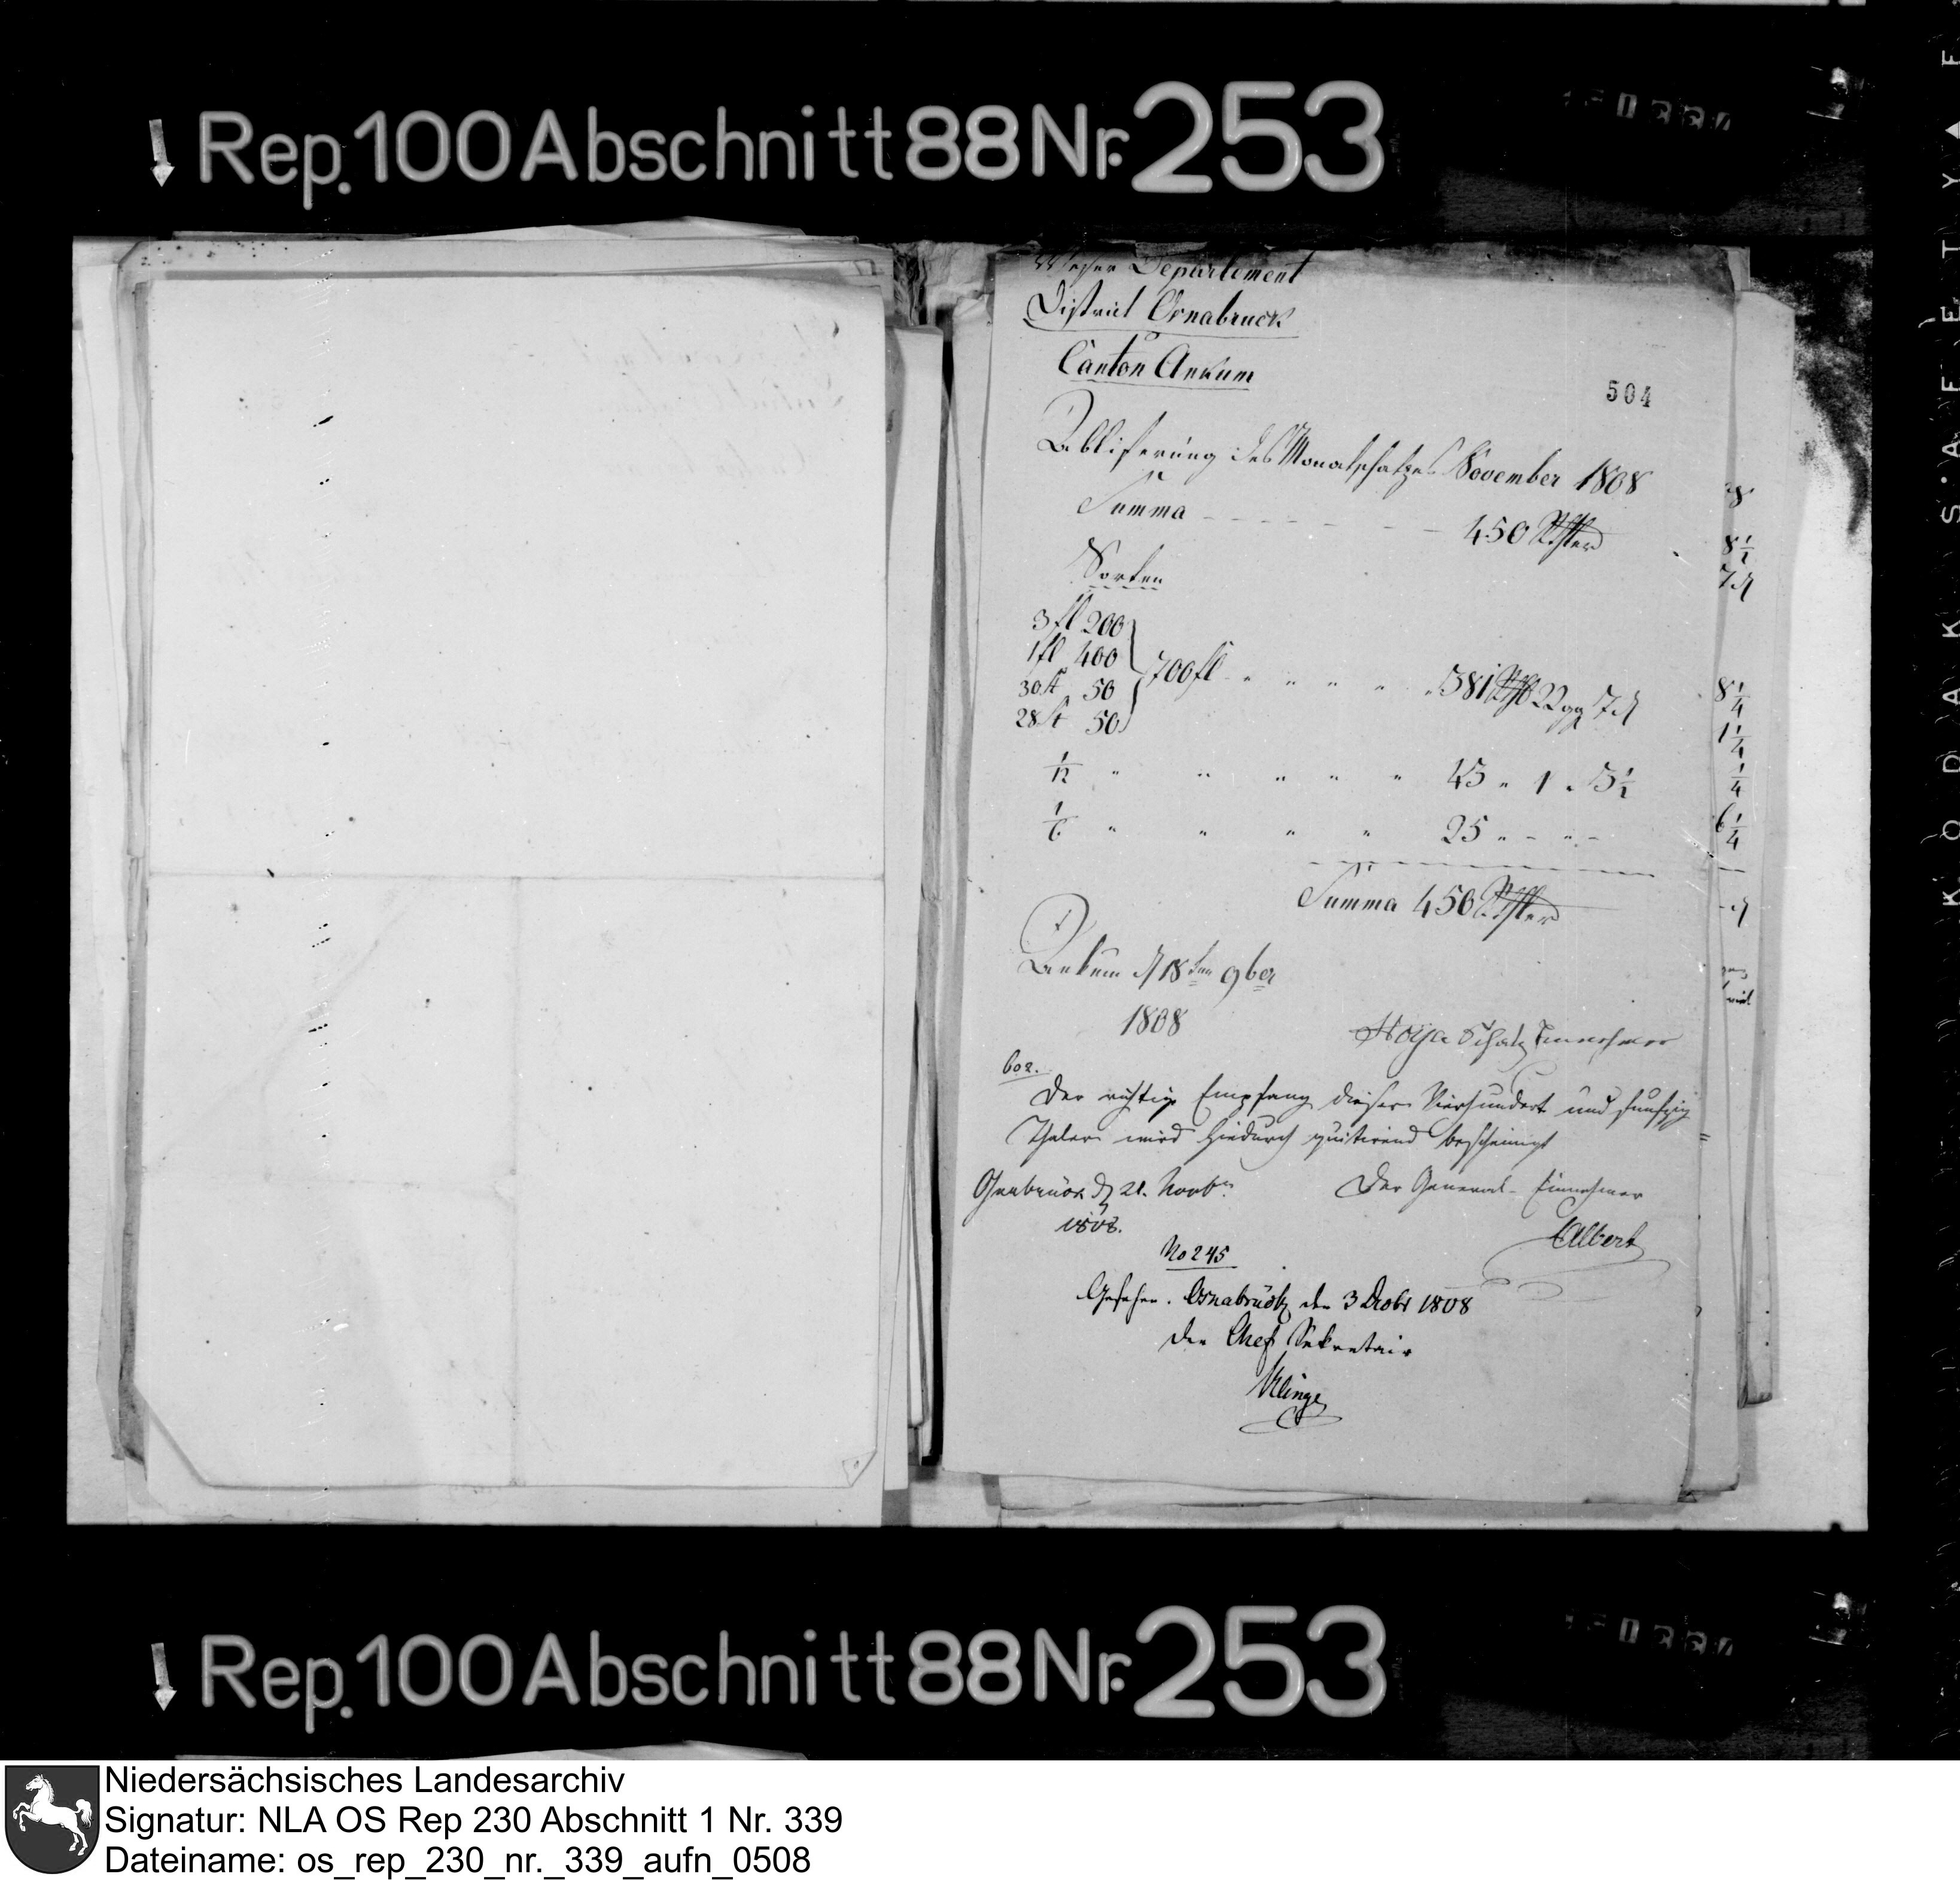 Rep. 100 Abschnitt 88 Nr. 253
Weser Departement
District Osnabruck
Canton Ankum
504
Abliferung des Monatschatzes November 1808
Summa - - - - - - 450 Rthler
Sorten
3 fl 200
1 fl 400
30 st 50
28 st 50
700 fl " " " " " 381 Rth 22 gg 7 d
1/12 " " " " " 43 " 1 " 5 1/2
1/6 " " " " 25 " - " -
Summa 450 Rthler
Ankum d 18ten 9ber
1808
Hoya Schatz Einnehmer
602.
Der richtige Empfang dieser Vierhundert und funfzig
Thaler wird hiedurch quitirend bescheinigt
Osnabrück d 21. Novbr.
1808.
Der General-Einnehmer
Albert
No 245
Gesehen. Osnabrück den 3 Decbr 1808
der Chef Sekretair
Klinge
8
8 1/2
7 d
8 1/4
1 1/4
1/4
6 1/4
- d
Rep. 100 Abschnitt 88 Nr. 253
KODAK SAFETY
Niedersächsisches Landesarchiv
Signatur: NLA OS Rep 230 Abschnitt 1 Nr. 339
Dateiname: os_rep_230_nr._339_aufn_0508